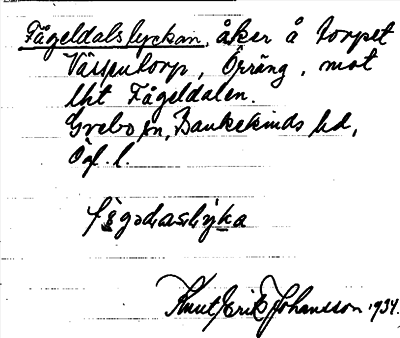 Fågeldalslyckan, åker å torpet
Väsputorp, Örräng, mot
lht Fågeldalen.
Grebo sn, Bankekinds hd,
Ögl. l.
Knut Erik Johansson 1934.